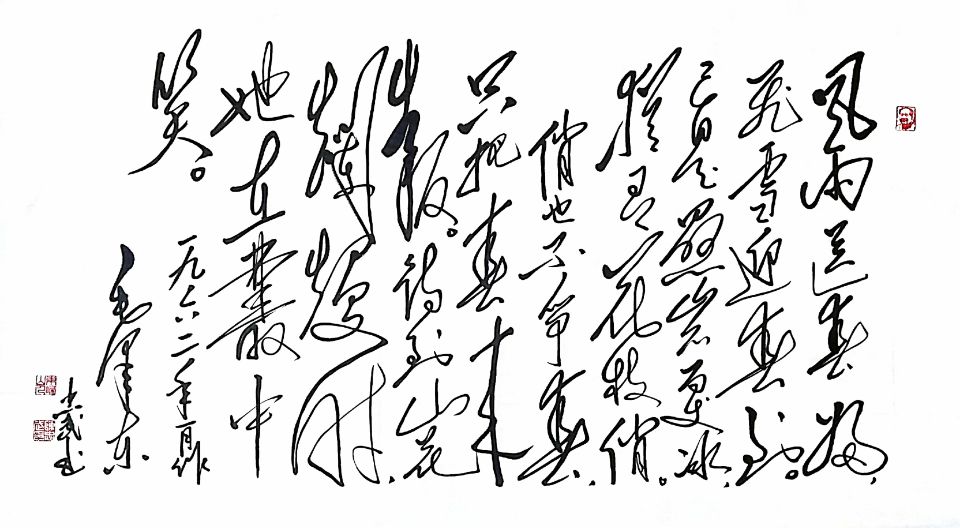 风雨送春归,
飞雪迎春到。
已是悬岩百丈冰,
犹有花枝俏。
俏也不争春,
只把春来
報。待到山花
爛熳时,
她在叢中
笑。
一九六二年一月作
毛泽东